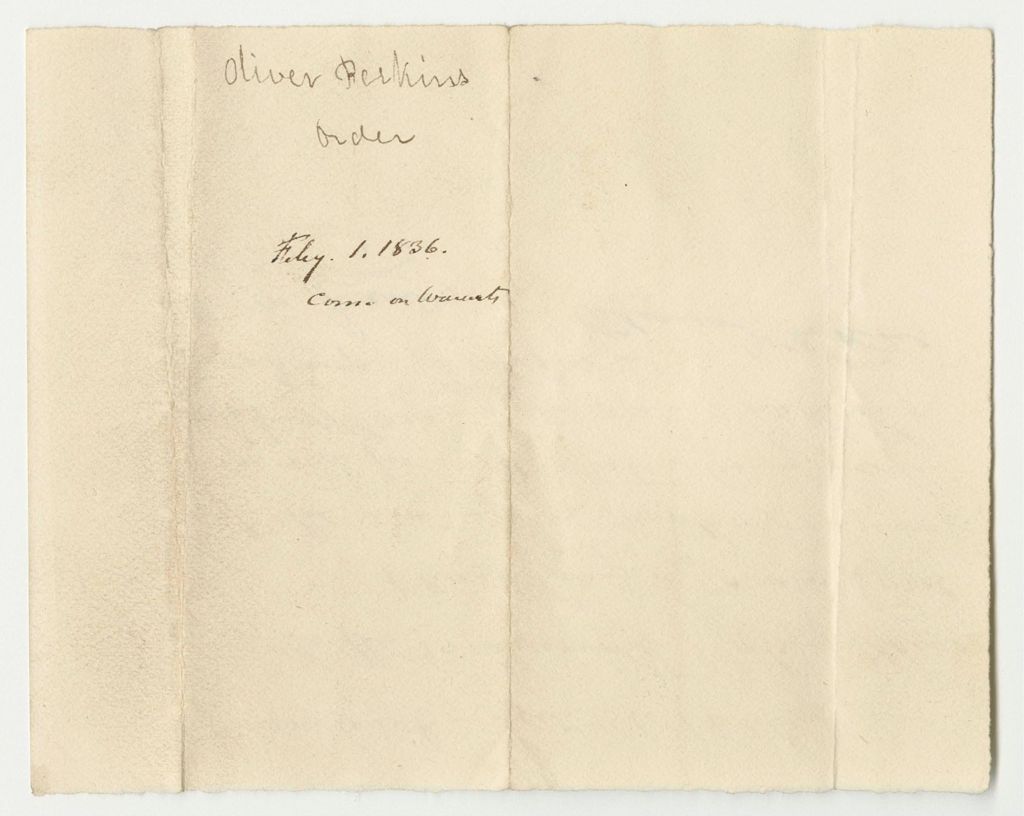 Oliver Perkins
Order
Feby. 1. 1836.
Come on Warrants